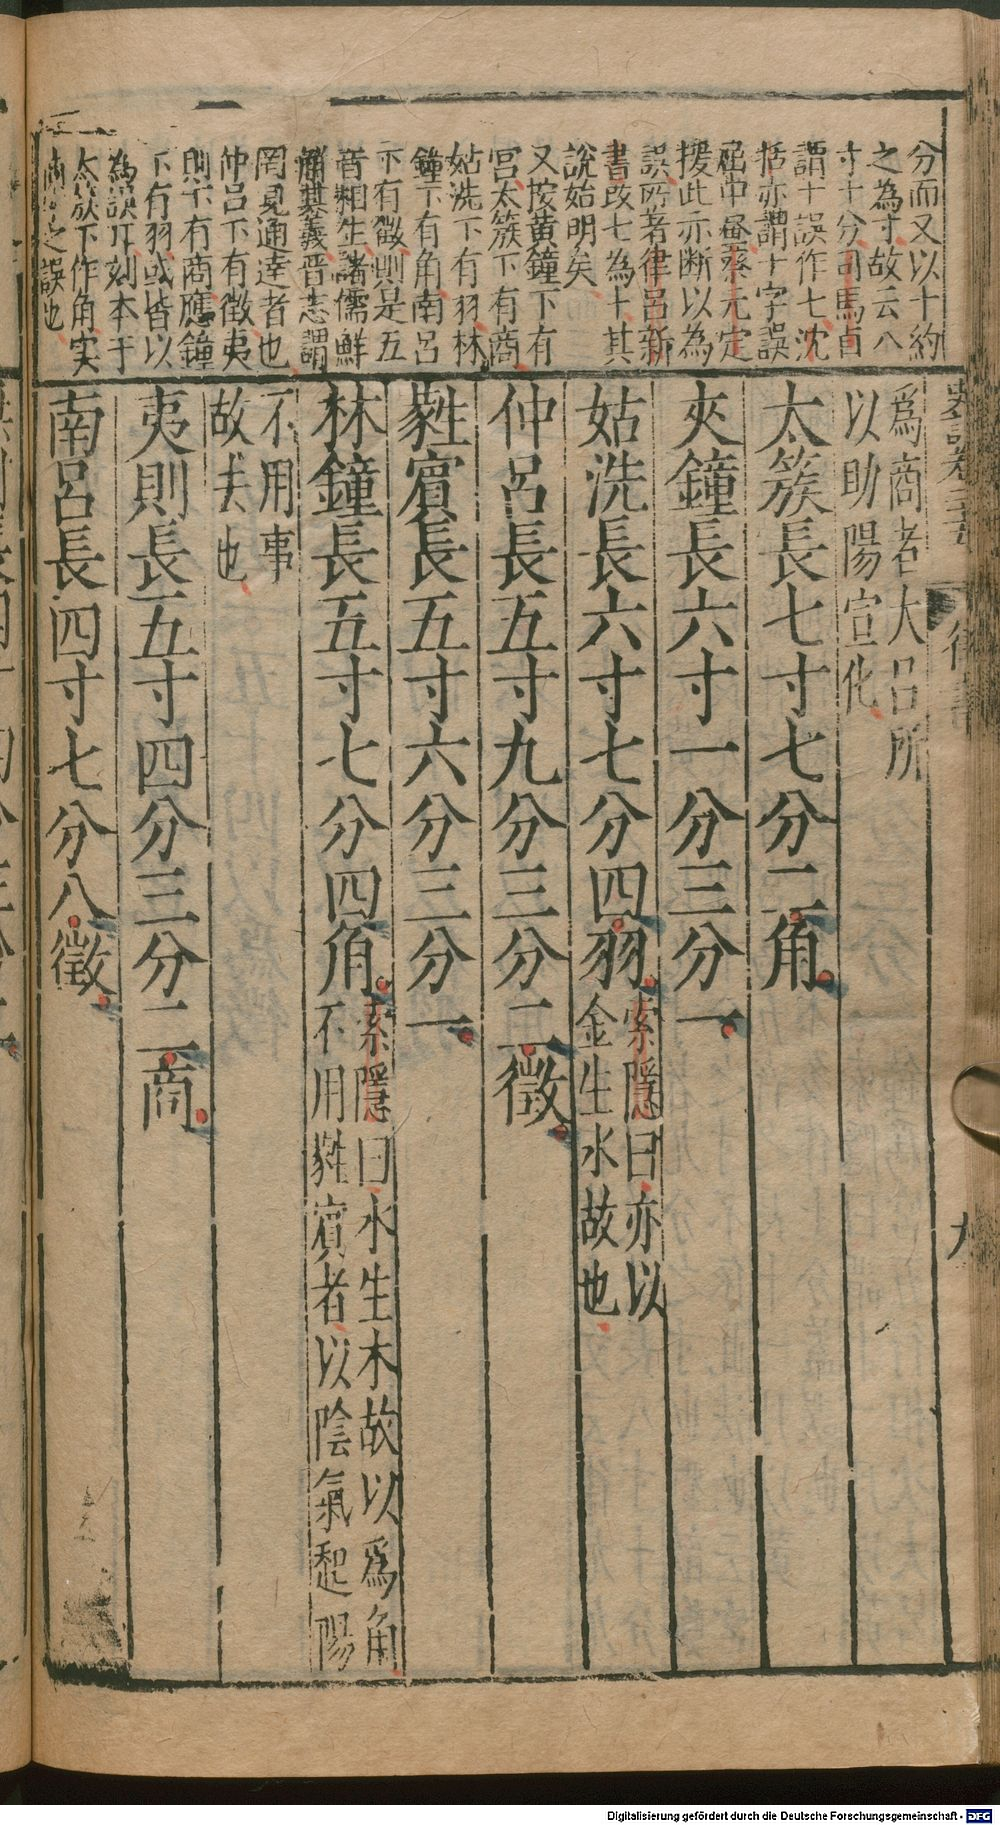 分而又以十約
之為寸故云八
寸十分司馬貞
謂十誤作七沈
括亦謂十字誤
屈中蔡元定
援此亦断以為
誤所著律呂新
書改七為十其
說始明矣
又按黃鐘下有
宮太簇下有商
姑洗下有羽林
鐘下有角南呂
下有徵則是五
音相生諸儒鮮
義晋志謂
罔見通達者也
仲呂下有徵夷
則下有商應鐘
下有羽或皆以
為誤耳刻本于
太簇下作角实
之誤也
爲商者大呂所
以助陽宣化
太簇長七寸七分二角
夾鐘長六寸一分三分一
姑洗長六寸七分四羽索隱曰亦以
金生水故也
仲呂長五寸九分三分二徵
蕤賔長五寸六分三分一
林鐘長五寸七分四角索隱曰水生木故以爲角
不用蕤賔者以陰氣起陽
不用事
故去也
夷則長五寸四分三分二商
南呂長四寸七分八徵
九
Digitalisierung gefördert durch die Deutsche Forschungsgemeinschaft - DFG